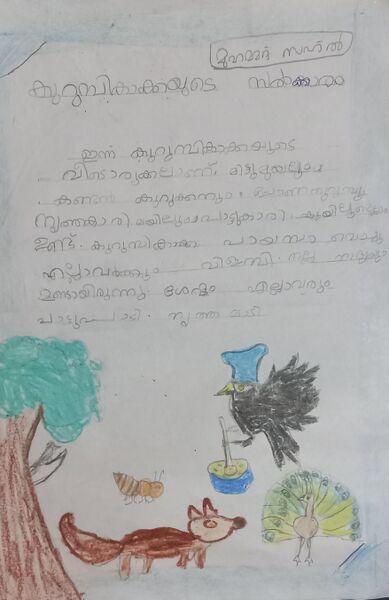 മുഹമ്മദ് സഹൽ
കുറുമ്പികാക്കയുടെ സൽക്കാരം
ഇന്ന് കുറുമ്പികാക്കയുടെ
വീട്ടിൽ മിട്ടുമുയലും
കണ്ടൻ കുറുക്കനും
നൃത്തകാരി മയിലും പാട്ടുകാരി കുയിലും
ഉണ്ട്. കുറുമ്പികാക്ക പായസം വെച്ചു
എല്ലാവർക്കും വിളമ്പി. നല്ല
ഉണ്ടായിരുന്നു. ശേഷം എല്ലാവരും
പാട്ടുപാടി. നൃത്തമാടി